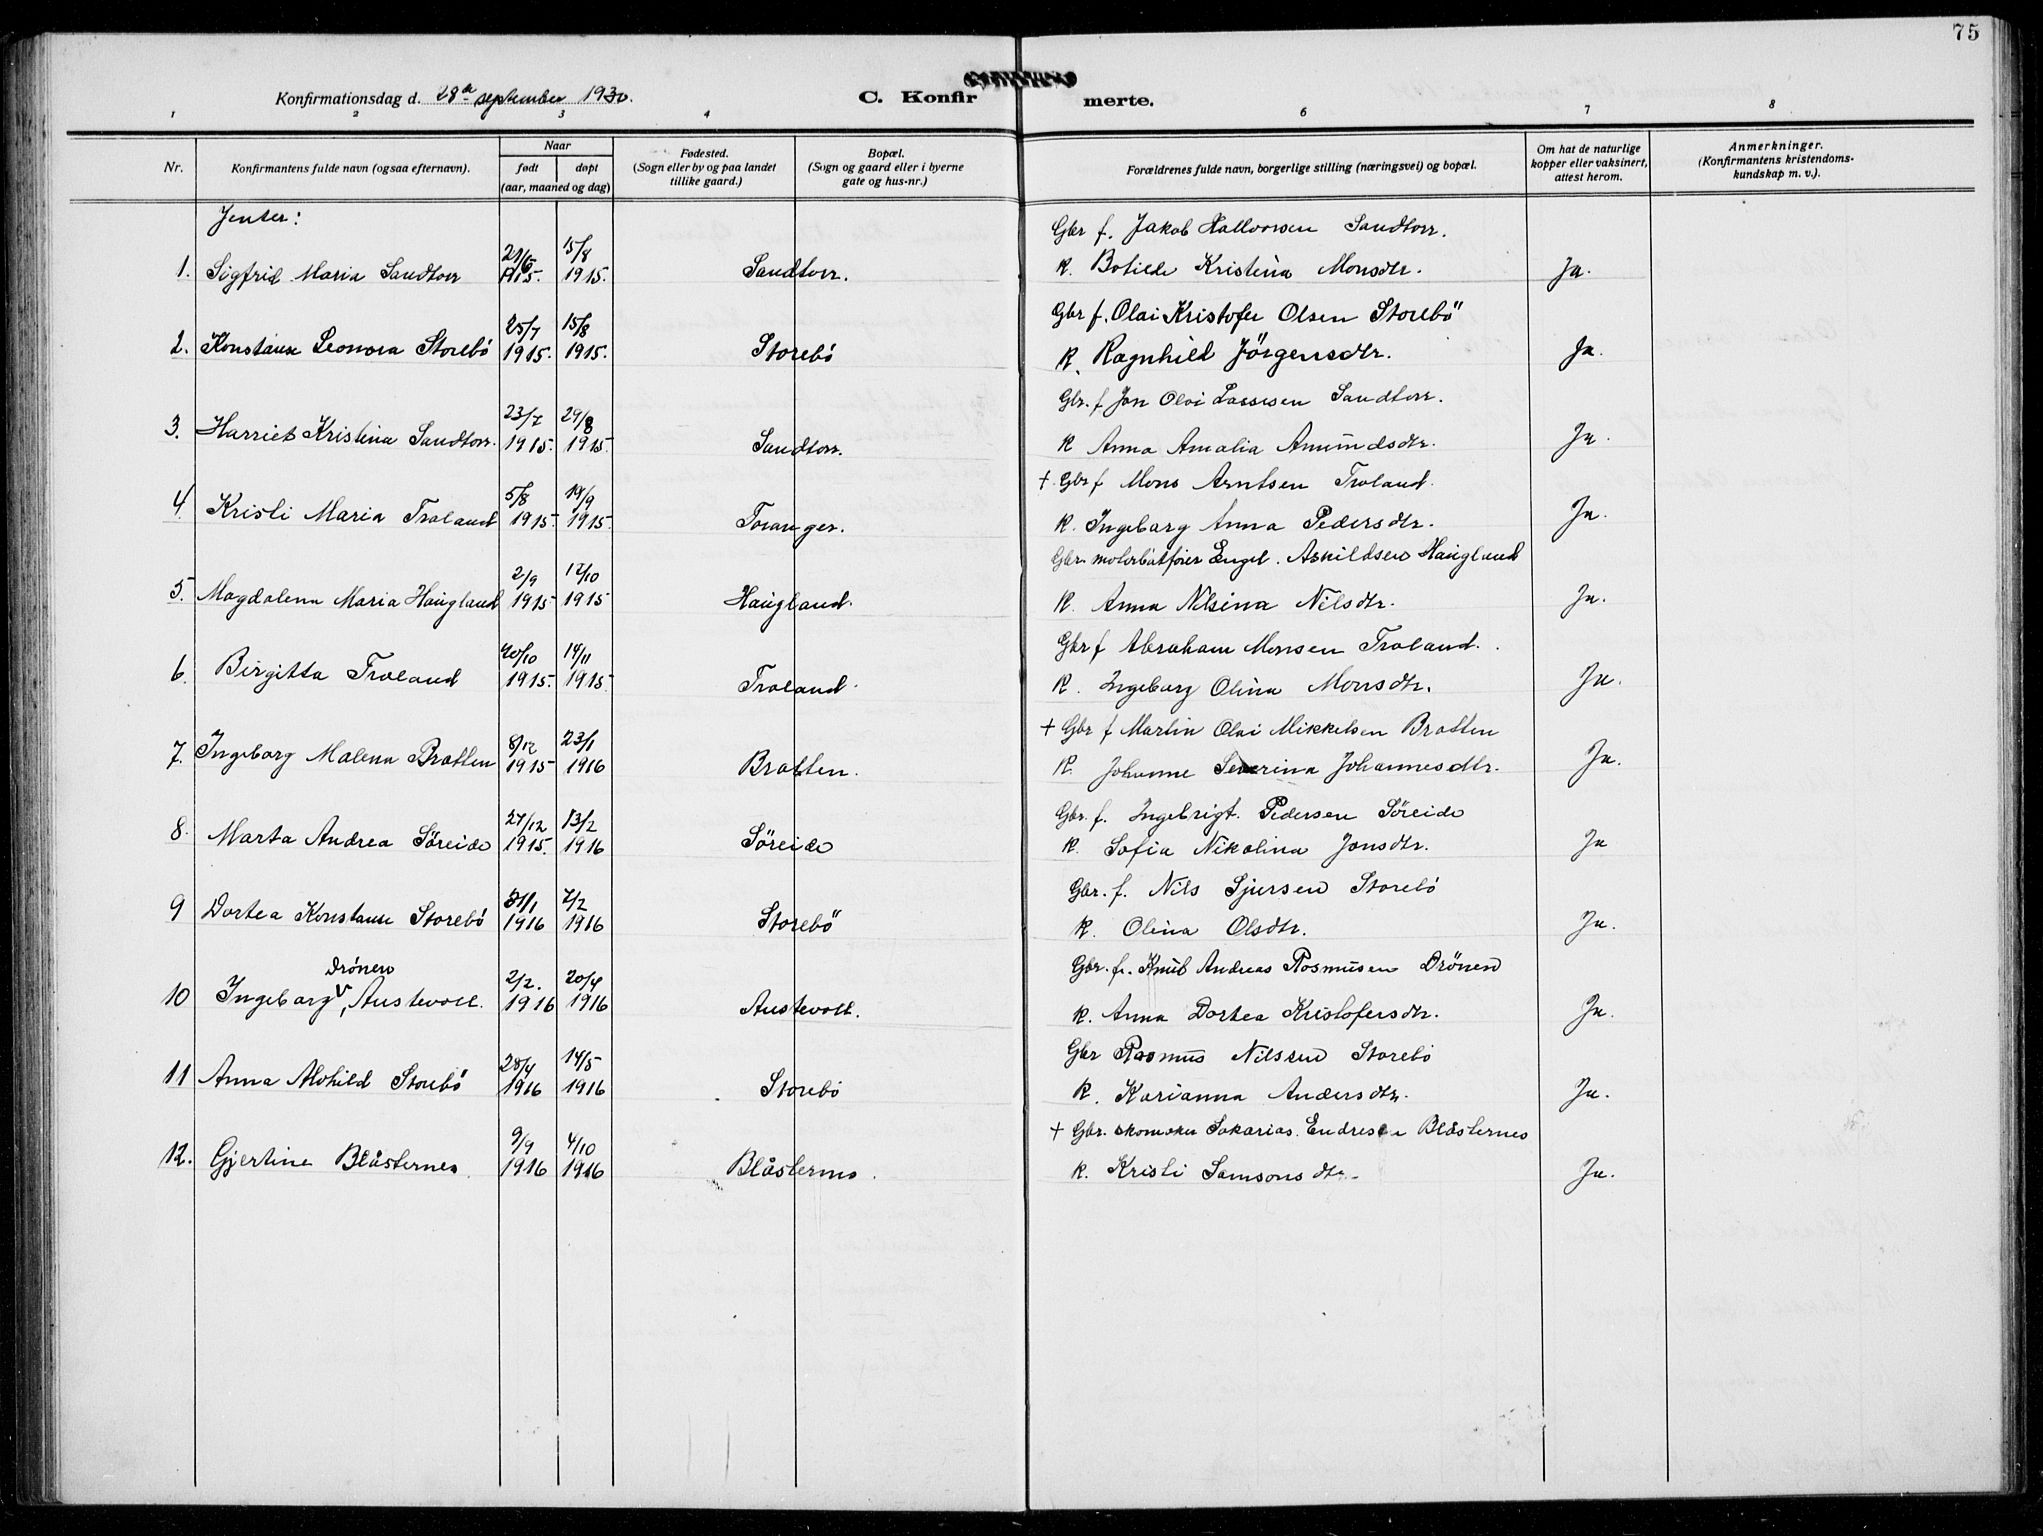 75
Konfirmationsdag d. 28de september 1930.
C. Konfirmerte.
1 2 3 4 6 7 8
Nr.
Konfirmantens fulde navn (ogsaa efternavn).
Naar
født døpt
(aar, maaned og dag)
Fødested.
(Sogn eller by og paa landet
tillike gaard.)
Bopæl.
(Sogn og gaard eller i byerne
gate og hus-nr.)
Forældrenes fulde navn, borgerlige stilling (næringsvei) og bopæl.
Om hat de naturlige
kopper eller vaksinert,
attest herom.
Anmerkninger.
(Konfirmantens kristendoms-
kundskap m. v.).
Jenter:
Gbr f. Jakob Halvorsen Sandtorr.
15/8
1. Sigfrid Maria Sandtorr 1915. Sandtorr. K. Botilde Kristina Monsdtr. Ja.
25/7 15/8 Gbr f. Olai Kristofer Olsen Storebö
2. Konstanse Leonora Storebö 1915. 1915. Storebö K. Ragnhild Jörgensdtr. Ja.
23/7 29/8 Gbr. f Jon Olai Lassesen Sandtorr.
3. Harriet Kristina Sandtorr. 1915. 1915. Sandtorr. K Anna Amalia Amundsdtr. Ja.
5/8 19/9 + Gbr f Mons Arntsen Troland.
4. Kristi Maria Troland 1915. 1915. Toranger. K. Ingeborg Anna Pedersdtr. Ja.
2/9 17/10 Gbr. motorbåtfører Engel. Askildsen Haugland
5. Magdalena Maria Haugland 1915 1915 Haugland. K. Anna Nilsina Nilsdtr. Ja.
20/10 14/11 Gbr f Abraham Monsen Troland.
6. Birgitta Troland 1915. 1915. Troland. K. Ingeborg Olina Monsdtr. Ja.
8/12 23/1 + Gbr f Martin Olai Mikkelsen Bratten
7. Ingeborg Malena Bratten 1915 1916 Bratten. K. Johanne Severina Johannesdtr. Ja.
27/12 13/2 Gbr. f. Ingebrigt. Pedersen Söreide
8. Marta Andrea Söreide 1915. 1916 Söreide K. Sofia Nikolina Jonsdtr. Ja
31/1 7/2 Gbr. f. Nils Sjursen Storebö
9 Dortea Konstanse Storebö 1916 1916 Storebö K. Olina Olsdtr. Ja.
Drönen 2/2. 20/4 Gbr. f. Knut Andreas Rasmusen Drönen
10 Ingeborg, Austevoll. 1916 1916 Austevoll. K. Anna Dortea Kristofersdtr. Ja.
28/4 14/5 Gbr Rasmus Nilssen Storebö
11 Anna Alvhild Storebö 1916 1916 Storebö K. Karianna Andersdtr. Ja.
9/9 4/10 + Gbr. skomaker Sakarias. Endresen Blåsternes
12. Gjertine Blåsternes 1916 1916 Blåsternes. K. Kristi Samsonsdtr. Ja.